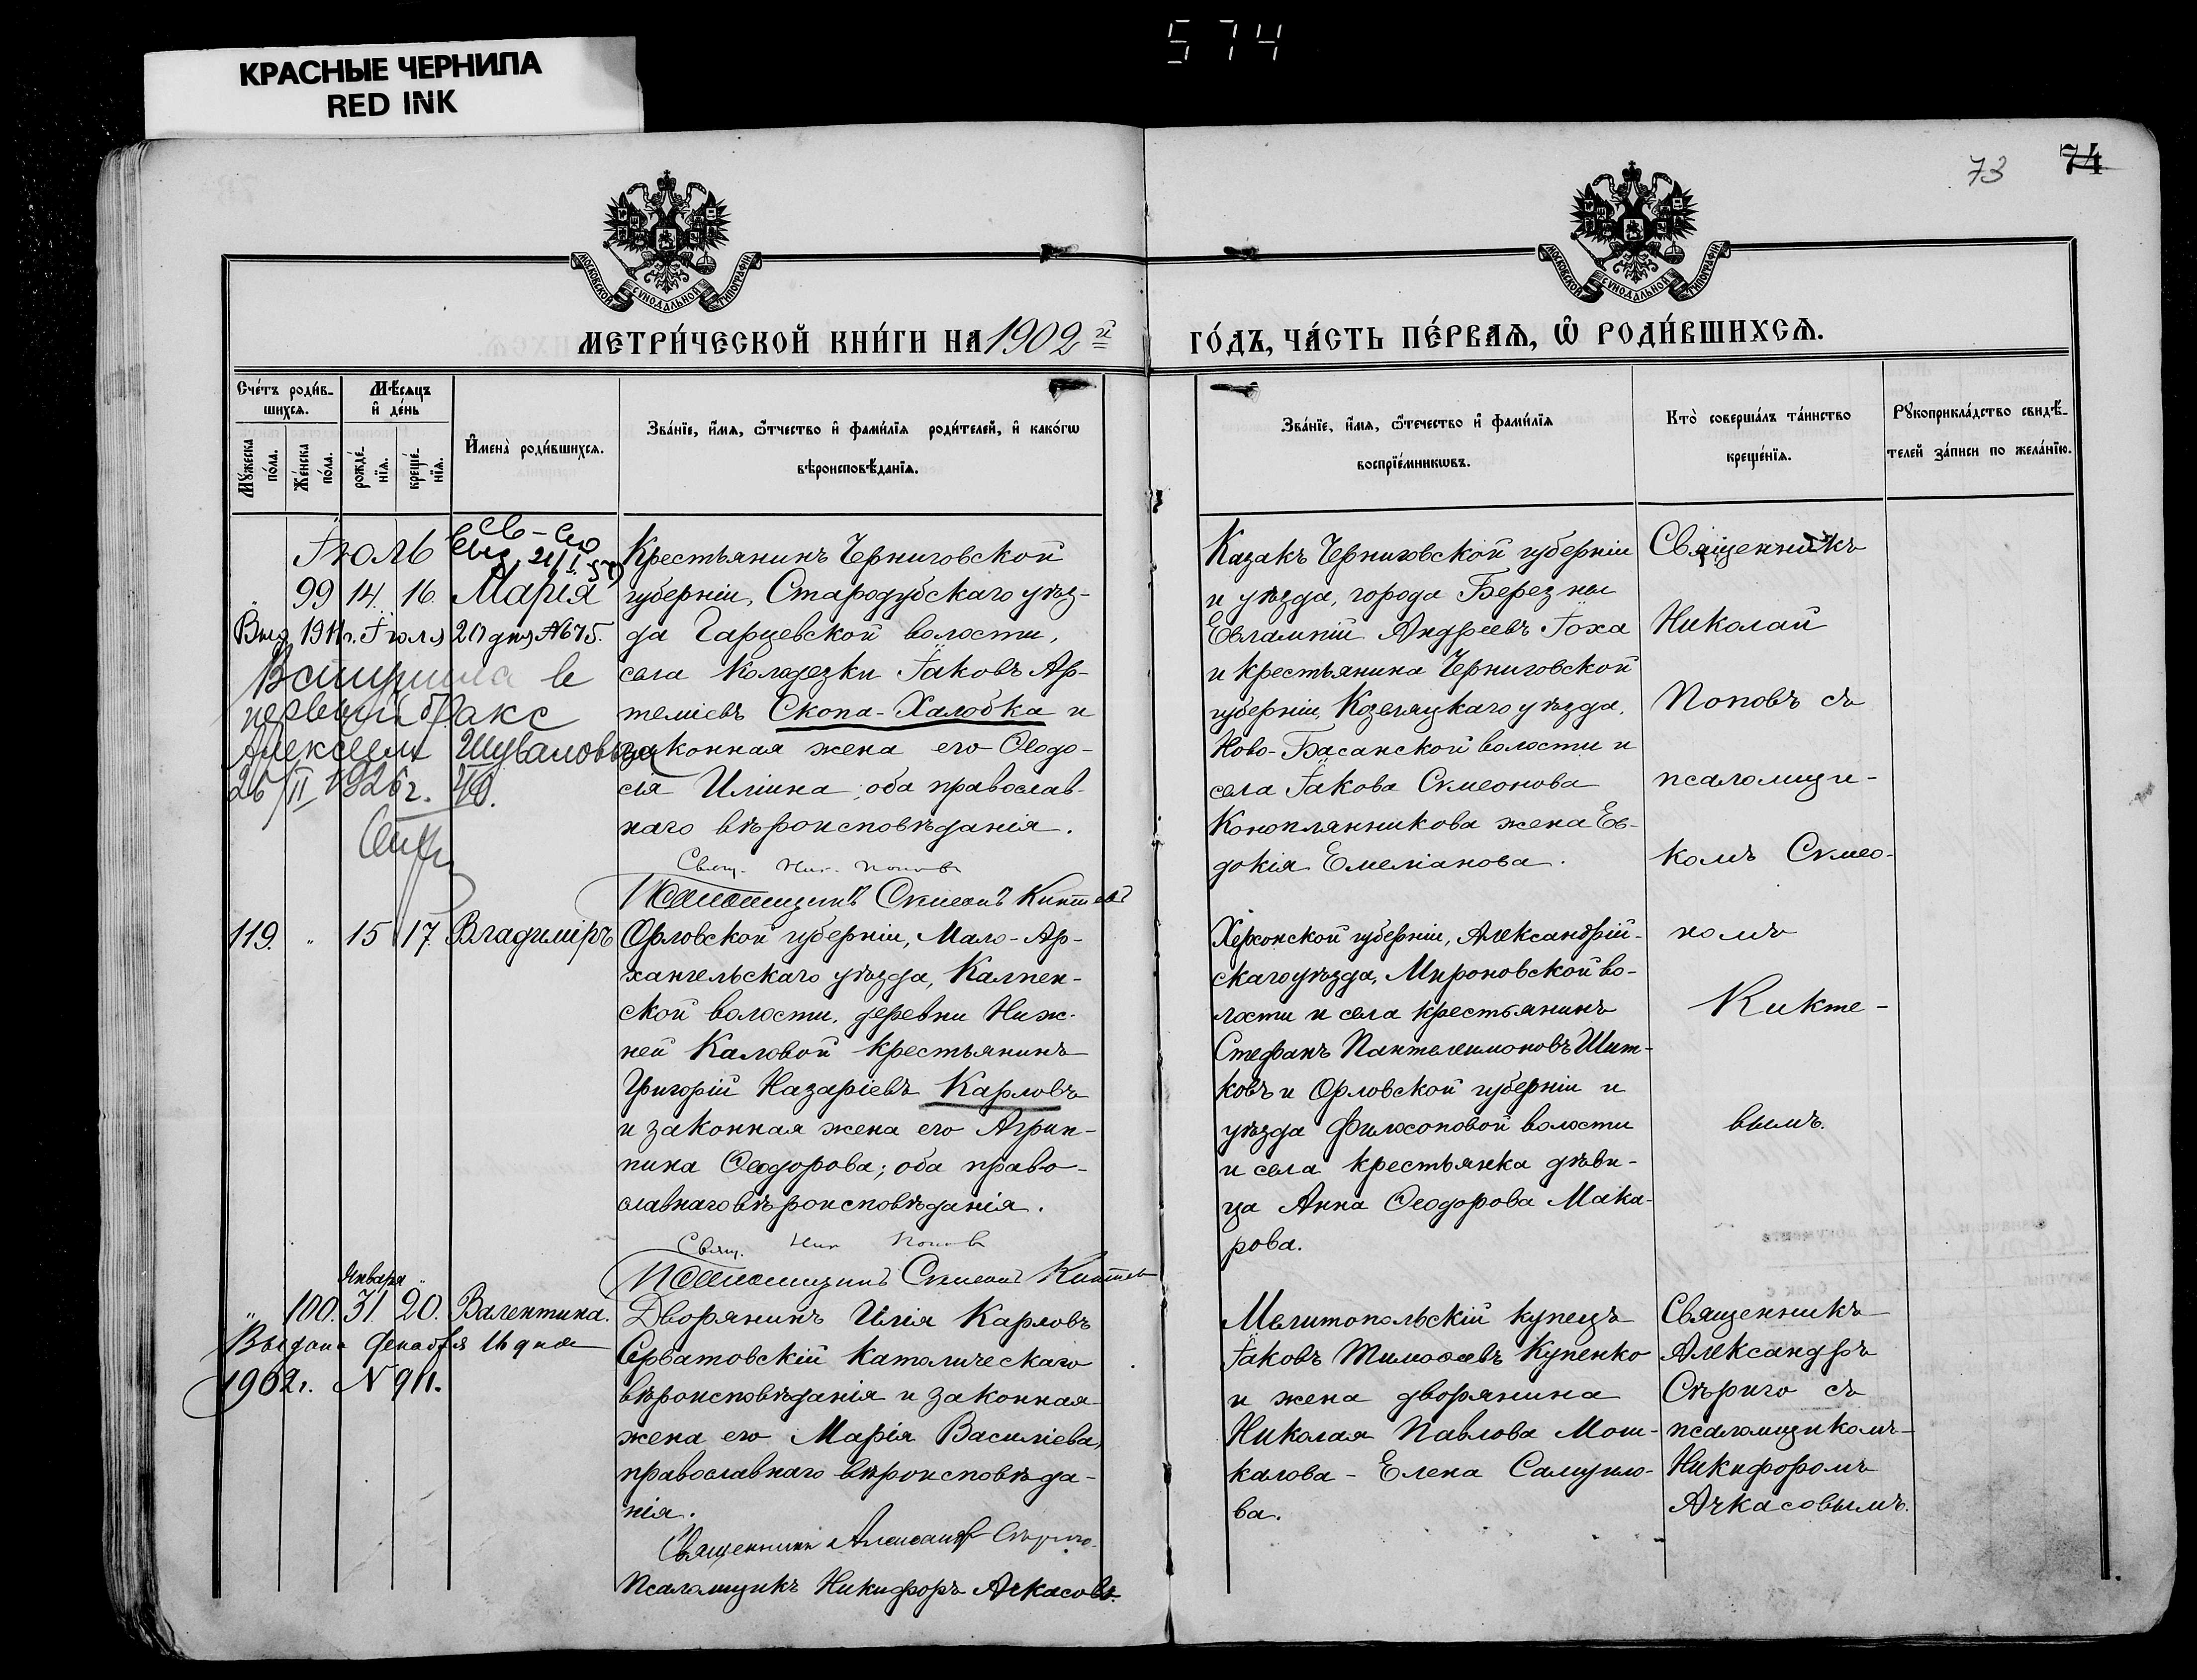 574
КРАСНЫЕ ЧЕРНИЛА
RED INK
73 74
МОСКОВСКОЙ СѴНОДАЛЬНОЙ ТИПОГРАФІИ
МОСКОВСКОЙ СѴНОДАЛЬНОЙ ТИПОГРАФІИ
МЕТРИ́ЧЕСКОЙ КНИ́ГИ НА 1902 й
ГО́ДЪ, ЧА́СТЬ ПЕ́РВАѦ, Ѡ҆ РОДИ́ВШИХСѦ.
Сче́тъ роди́в-
шихсѧ.
Мѣ́сѧцъ
и҆ де́нь
Мꙋ́жеска
по́ла.
Же́нска
по́ла.
рожде́-
нїѧ.
креще́-
нїѧ.
И҆мена̀ роди́вшихсѧ.
Зва́нїе, и҆́мѧ, ѻ҆́тчество и҆ фами́лїѧ роди́телей, и҆ како́гѡ
вѣроисповѣ́данїѧ.
Зва́нїе, и҆́мѧ, ѻ҆́течество и҆ фами́лїѧ
воспрїе́мникѡвъ.
Кто̀ соверша́лъ та́инство
креще́нїѧ.
Рꙋкоприкла́дство свидѣ́-
телей за́писи по жела́нїю.
Іюль
99 14. 16. Марія
Выд. 1911 г. Іюля 20 дня № 675.
Вступила в
первый брак с
Алексеем Шуваловым
26/II 1926 г.
Крестьянинъ Черниговской
губерніи, Стародубскаго уѣз-
да Гарцевской волости,
села Колодезки Іаковъ Ар-
теміевъ Скопа-Халобка и
законная жена его Ѳеодо-
сія Иліина; оба православ-
наго вѣроисповѣданія.
Свящ. Ник. Поповъ
Псаломщикъ Сѵмеонъ Киктевъ
Казакъ Черниговской губерніи
и уѣзда, города Березны
Евлампій Андреевъ Іоха
и крестьянина Черниговской
губерніи, Козелецкаго уѣзда,
Ново-Басанской волости и
села Іакова Сѵмеонова
Коноплянникова жена Ев-
докія Емеліанова.
Священникъ
Николай
Поповъ съ
псаломщи-
комъ Сѵмео-
номъ
Кикте-
вымъ.
119. „ 15 17. Владиміръ
Орловской губерніи, Мало-Ар-
хангельскаго уѣзда, Калпен-
ской волости, деревни Ниж-
ней Каловой крестьянинъ
Григорій Назаріевъ Карловъ
и законная жена его Агрип-
пина Ѳеодорова; оба право-
славнаго вѣроисповѣданія.
Свящ. Ник Поповъ
Псаломщикъ Сѵмеонъ Киктев
Херсонской губерніи, Александрій-
скаго уѣзда, Мироновской во-
лости и села крестьянинъ
Стефанъ Пантелеимоновъ Шит-
ковъ и Орловской губерніи и
уѣзда Философовой волости
и села крестьянка дѣви-
ца Анна Ѳеодорова Мака-
рова.
Января
„ 100. 31. 20. Валентина.
Выдана декабря 16 дня
1902 г. № 911.
Дворянинъ Илія Карловъ
Серватовскій католическаго
вѣроисповѣданія и законная
жена его Марія Василіева,
православнаго вѣроисповѣда-
нія.
Священникъ Александръ Стериго.
Псаломщикъ Никифоръ Ачкасовъ.
Мелитопольскій купецъ
Іаковъ Тимоѳеевъ Купенко
и жена дворянина
Николая Павлова Мош-
калова - Елена Самуило-
ва.
Священникъ
Александръ
Стѣриго съ
псаломщикомъ
Никифоромъ
Ачкасовымъ.